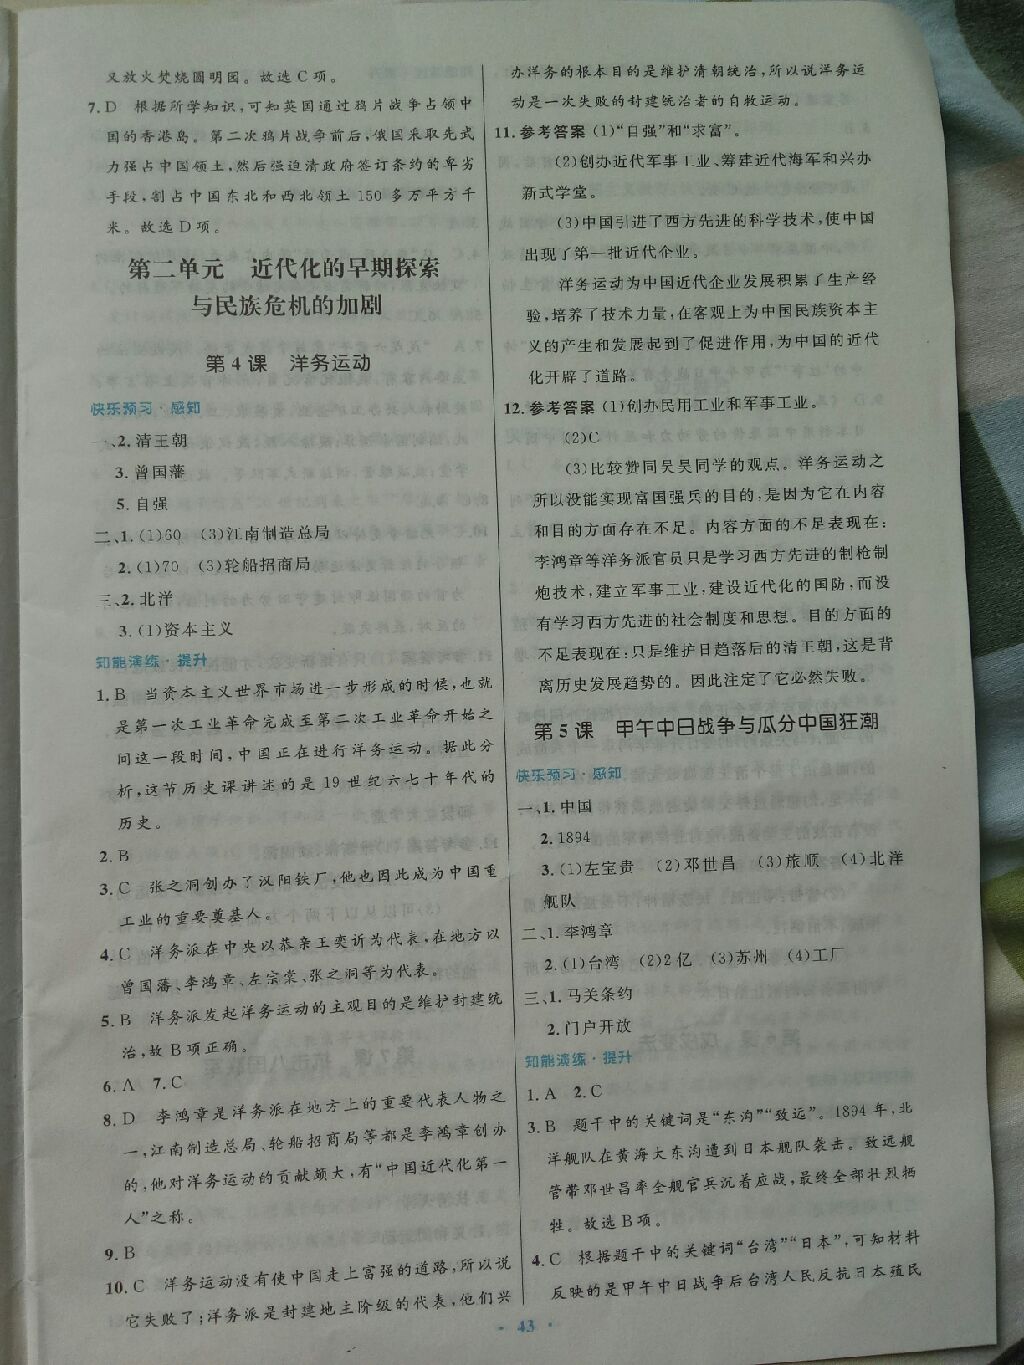 又放火焚烧圆明园。故选C项。
7. D　根据所学知识，可知英国通过鸦片战争占领中
国的香港岛。第二次鸦片战争前后，俄国采取先武
力强占中国领土，然后强迫清政府签订条约的卑劣
手段，割占中国东北和西北领土150多万平方千
米。故选D项。
第二单元　近代化的早期探索
与民族危机的加剧
第4课　洋务运动
快乐预习·感知
一、2. 清王朝
3. 曾国藩
5. 自强
二、1. (1)60　(3)江南制造总局
2. (1)70　(3)轮船招商局
三、2. 北洋
3. (1)资本主义
知能演练·提升
1. B　当资本主义世界市场进一步形成的时候，也就
是第一次工业革命完成至第二次工业革命开始之
间这一段时间，中国正在进行洋务运动。据此分
析，这节历史课讲述的是19世纪六七十年代的
历史。
2. B
3. C　张之洞创办了汉阳铁厂，他也因此成为中国重
工业的重要奠基人。
4. C　洋务派在中央以恭亲王奕䜣为代表，在地方以
曾国藩、李鸿章、左宗棠、张之洞等为代表。
5. B　洋务派发起洋务运动的主观目的是维护封建统
治，故B项正确。
6. A　7. C
8. D　李鸿章是洋务派在地方上的重要代表人物之
一，江南制造总局、轮船招商局等都是李鸿章创办
的，他对洋务运动的贡献颇大，有“中国近代化第一
人”之称。
9. B
10. C　洋务运动没有使中国走上富强的道路，所以说
它失败了；洋务派是封建地主阶级的代表，他们兴
办洋务的根本目的是维护清朝统治，所以说洋务运
动是一次失败的封建统治者的自救运动。
11. 参考答案 (1)“自强”和“求富”。
(2)创办近代军事工业、筹建近代海军和兴办
新式学堂。
(3)中国引进了西方先进的科学技术，使中国
出现了第一批近代企业。
洋务运动为中国近代企业发展积累了生产经
验，培养了技术力量，在客观上为中国民族资本主
义的产生和发展起到了促进作用，为中国的近代
化开辟了道路。
12. 参考答案 (1)创办民用工业和军事工业。
(2)C
(3)比较赞同吴昊同学的观点。洋务运动之
所以没能实现富国强兵的目的，是因为它在内容
和目的方面存在不足。内容方面的不足表现在：
李鸿章等洋务派官员只是学习西方先进的制枪制
炮技术，建立军事工业，建设近代化的国防，而没
有学习西方先进的社会制度和思想。目的方面的
不足表现在：只是维护日趋落后的清王朝，这是背
离历史发展趋势的。因此注定了它必然失败。
第5课　甲午中日战争与瓜分中国狂潮
快乐预习·感知
一、1. 中国
2. 1894
3. (1)左宝贵　(2)邓世昌　(3)旅顺　(4)北洋
舰队
二、1. 李鸿章
2. (1)台湾　(2)2亿　(3)苏州　(4)工厂
三、1. 马关条约
2. 门户开放
知能演练·提升
1. A　2. C
3. B　题干中的关键词是“东沟”“致远”。1894年，北
洋舰队在黄海大东沟遭到日本舰队袭击。致远舰
管带邓世昌率全舰官兵沉着应战，最终全部壮烈牺
牲。故选B项。
4. C　根据题干中的关键词“台湾”“日本”，可知材料
反映的是甲午中日战争后台湾人民反抗日本殖民
· 43 ·